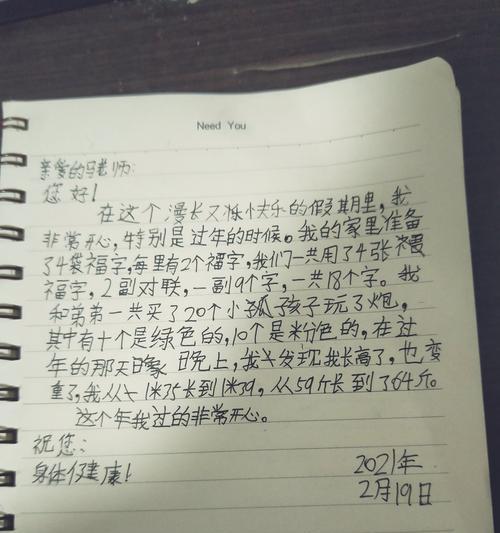 Need You
亲爱的马老师:
您好!
在这个漫长又快乐的假期里,我
非常开心,特别是过年的时候。我的家里准备
了4袋福字,每里有2个福字,我们一共用了4张
福字,2副对联,一副9个字,一共18个字。我
和弟弟一共买了20个小孤孩子玩了炮,
其中有十个是绿色的,10个是粉色的,在过
年的那天 晚上,我发现我长高了,也变
重了,我从1米35长到1米39,从59斤长到了64斤。
这个年我过的非常开心。
祝您:
身体健康!
2021年
2月19日